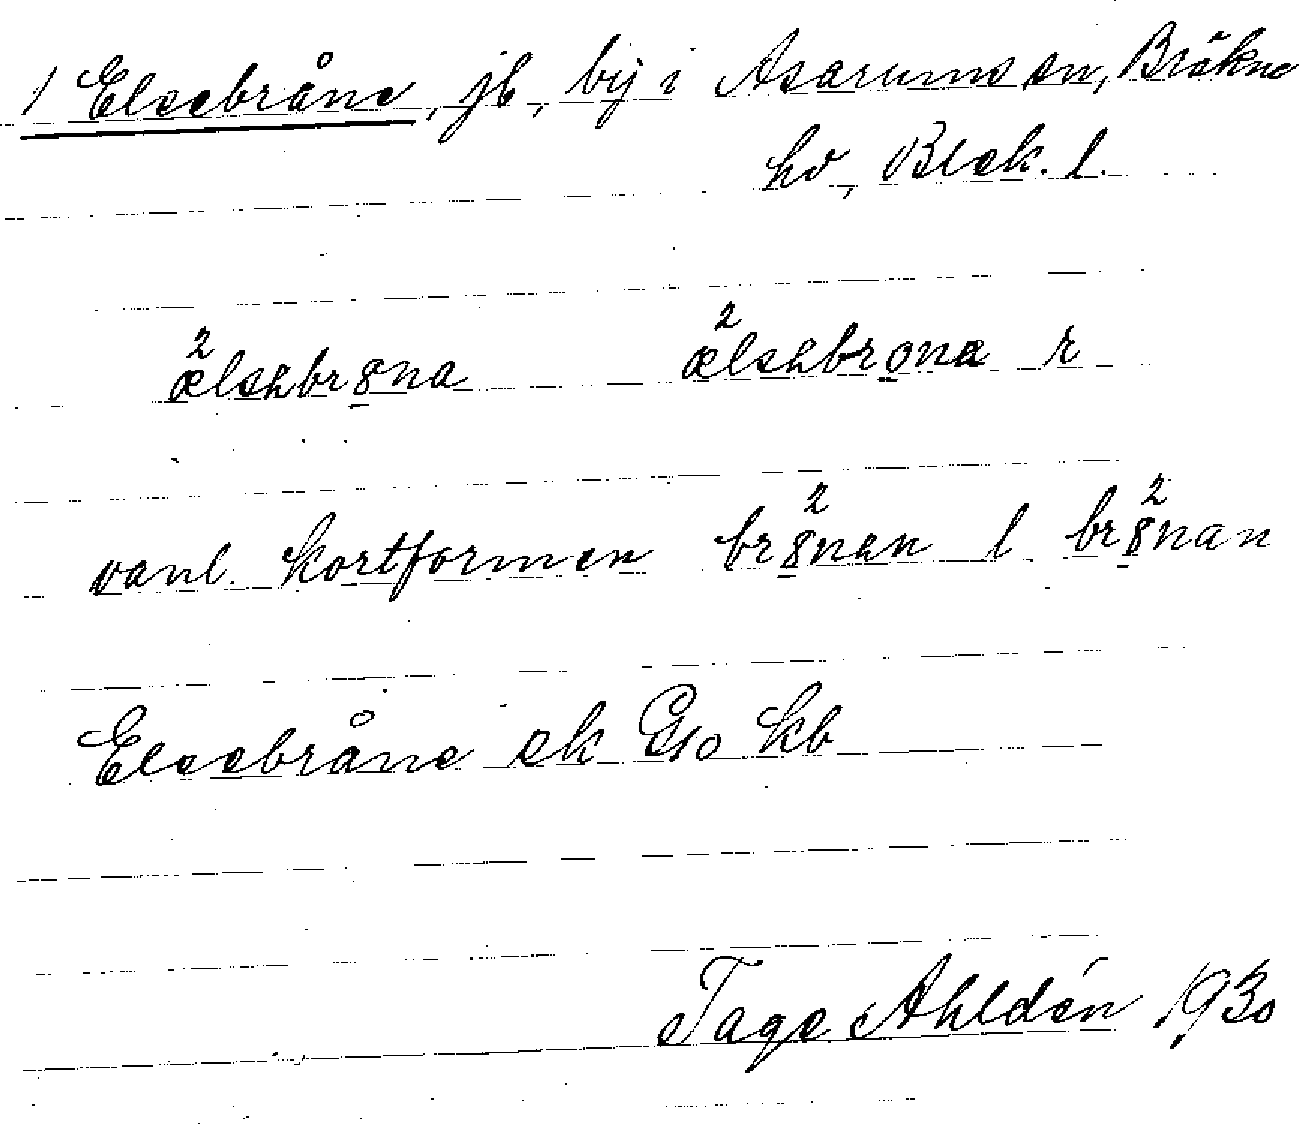 1 Elsebråne, jb, by i Asarums sn, Bräkne
hd, Blek. l.
²ælsəbr8̱na ²ælsəbro̱na r
vanl. kortformen br²8̱nan l br²8̱nan
Elsebråne ek Gso kb
Tage Ahldén 1930